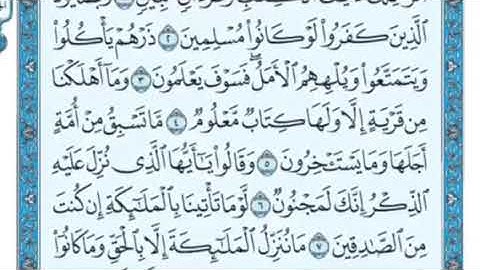 الَّذِينَ كَفَرُوا۟ لَوْ كَانُوا۟ مُسْلِمِينَ ٢ ذَرْهُمْ يَأْكُلُوا۟
وَيَتَمَتَّعُوا۟ وَيُلْهِهِمُ ٱلْأَمَلُ ۖ فَسَوْفَ يَعْلَمُونَ ٣ وَمَآ أَهْلَكْنَا
مِن قَرْيَةٍ إِلَّا وَلَهَا كِتَابٌ مَّعْلُومٌ ٤ مَّا تَسْبِقُ مِنْ أُمَّةٍ
أَجَلَهَا وَمَا يَسْتَـْٔخِرُونَ ٥ وَقَالُوا۟ يَٰٓأَيُّهَا ٱلَّذِى نُزِّلَ عَلَيْهِ
ٱلذِّكْرُ إِنَّكَ لَمَجْنُونٌ ٦ لَّوْ مَا تَأْتِينَا بِٱلْمَلَٰٓئِكَةِ إِن كُنتَ
مِنَ ٱلصَّٰدِقِينَ ٧ مَا نُنَزِّلُ ٱلْمَلَٰٓئِكَةَ إِلَّا بِٱلْحَقِّ وَمَا كَانُوٓا۟